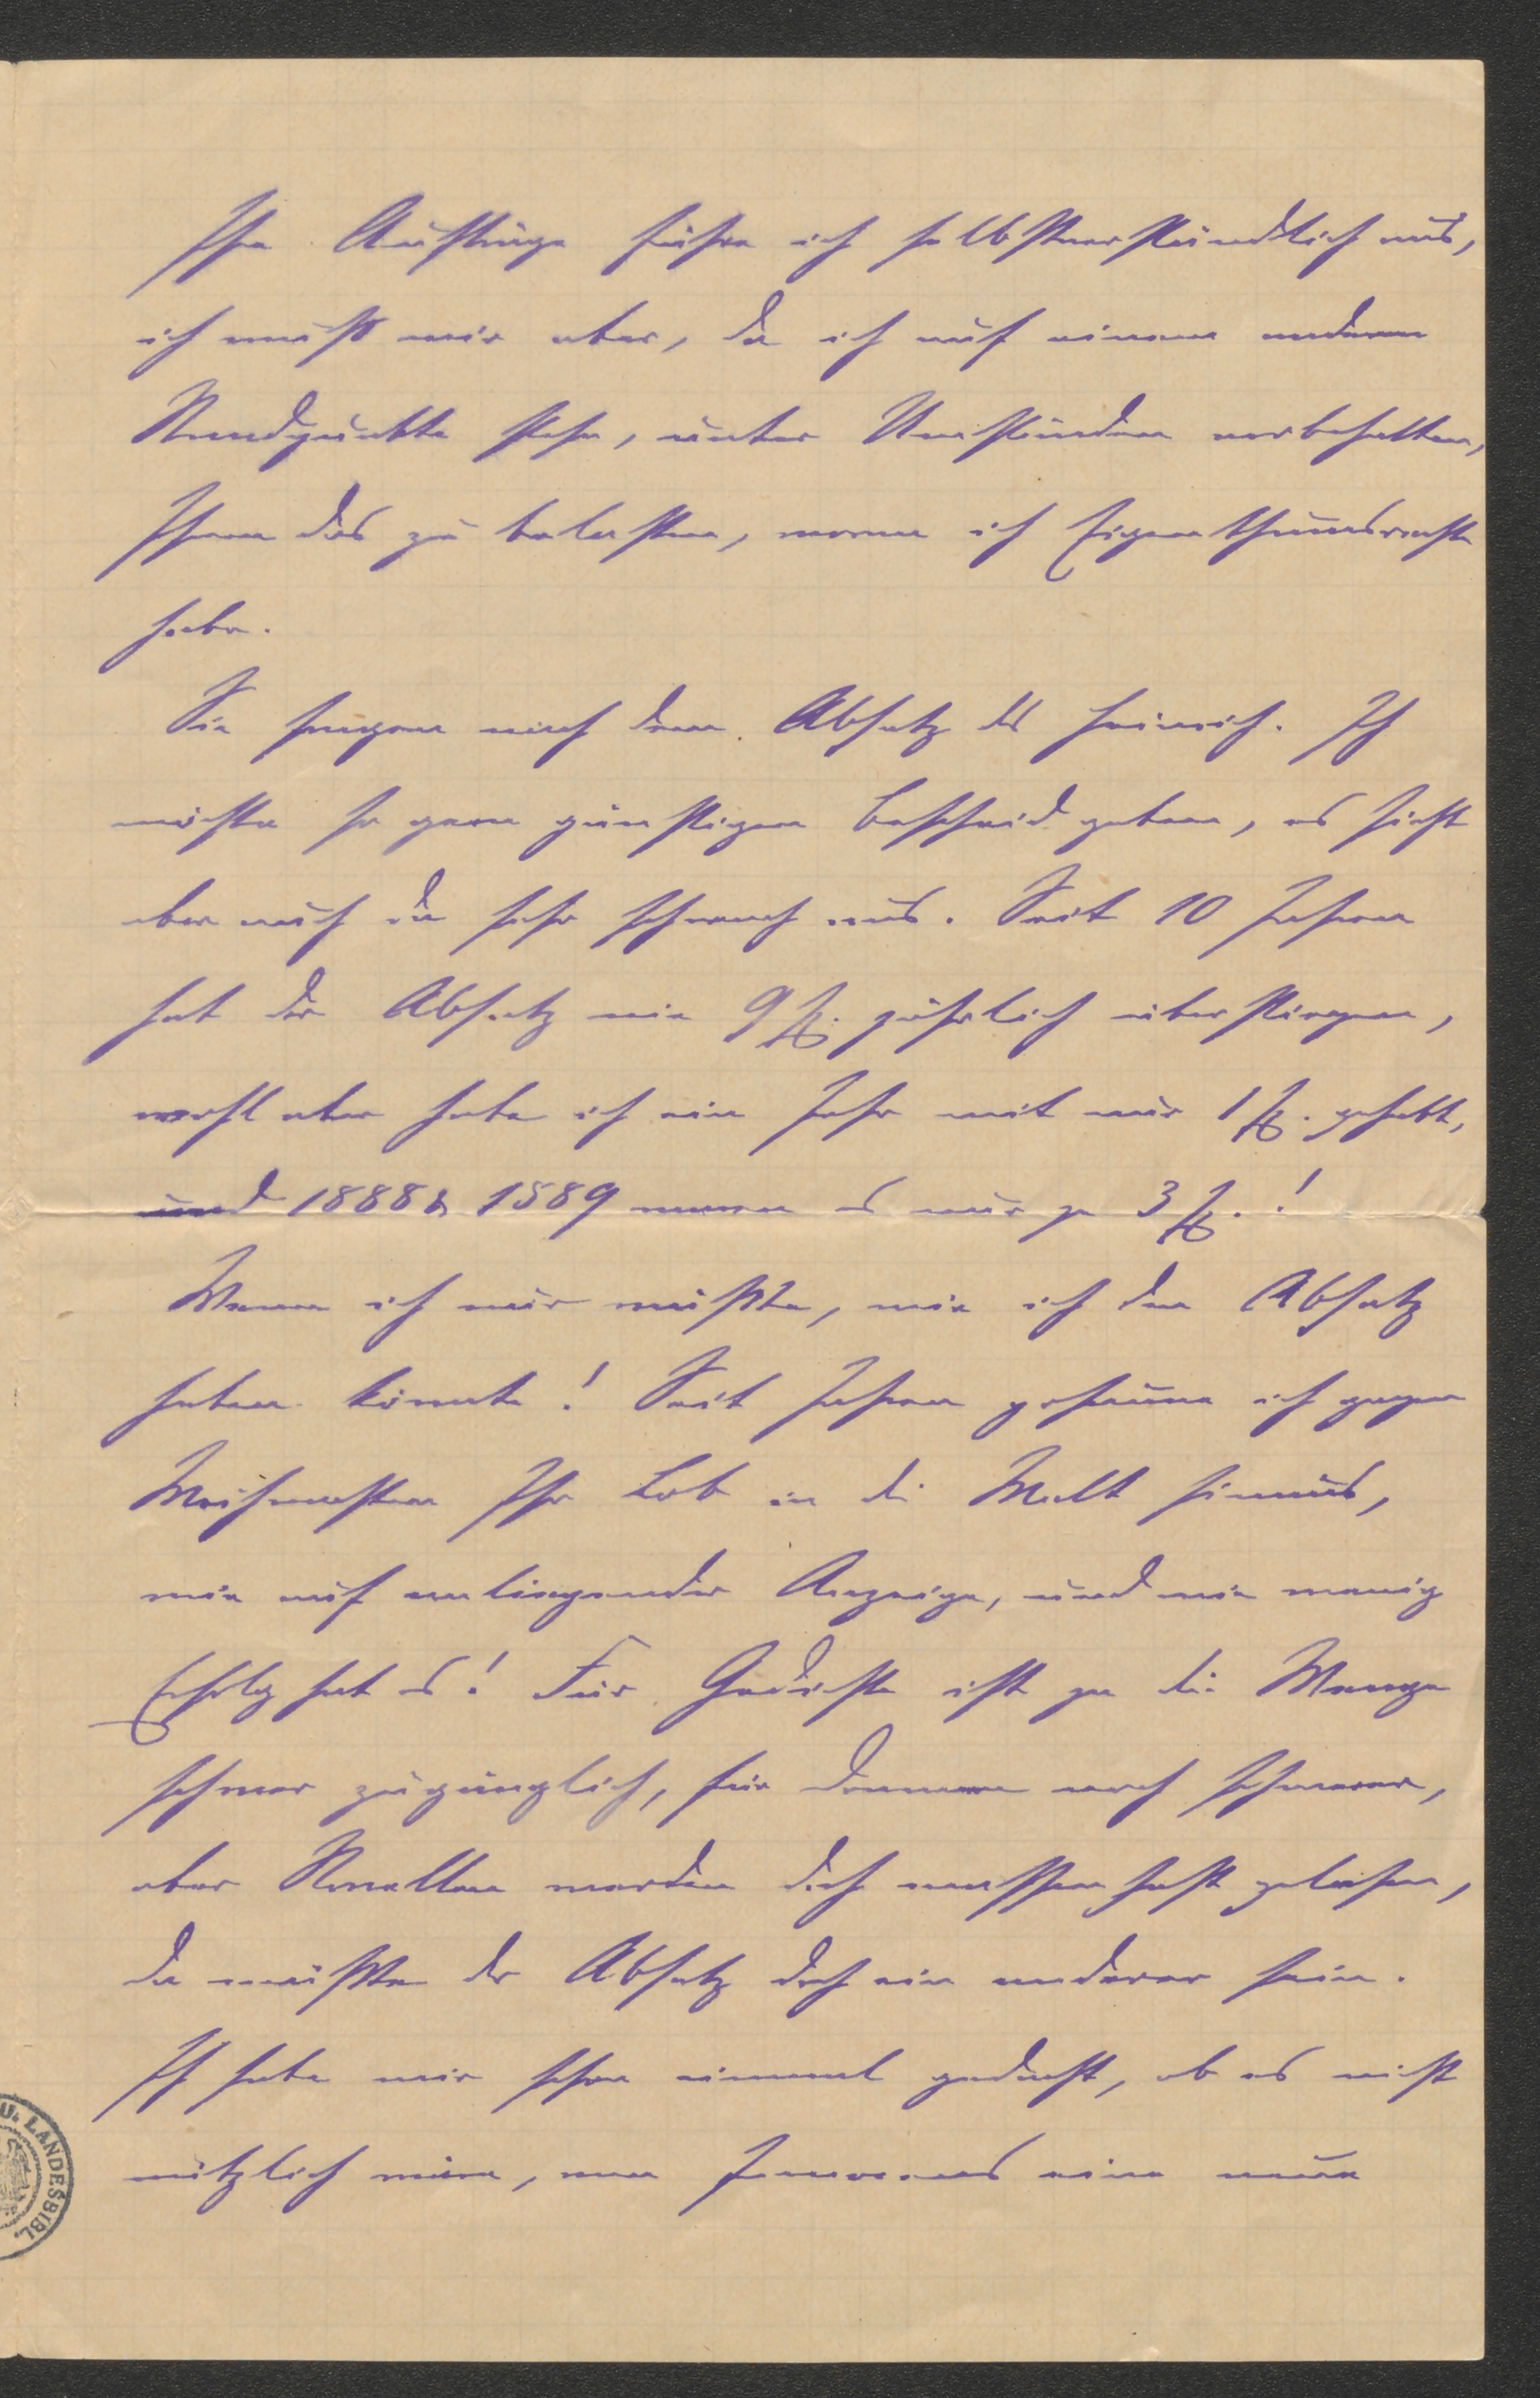 Ihre Aufträge führe ich selbstverständlich aus,
ich muß mir aber, da ich auf einem anderen
Standpunkte stehe, unter Umständen vorbehalten,
Ihnen das zu belasten, woran ich Eigenthumsrechte
habe.
Sie fragen nach dem Absatz des Heinrich. Ich
möchte so gern günstigen Bescheid geben, es sieht
aber auch da sehr schwach aus. Seit 10 Jahren
hat der Absatz nie 9 Ex. jährlich überstiegen,
wohl aber habe ich ein Jahr mit nur 1 Ex. gehabt,
und 1888 & 1889 waren es nur je 3 Ex.!
Wenn ich nur wüßte, wie ich den Absatz
heben könnte! Seit Jahren posaune ich gegen
Weihnachten Ihr Lob in die Welt hinaus,
wie auf anliegender Anzeige, und wie wenig
Erfolg hat es! Für Gedichte ist ja die Menge
schwer zugänglich, für Dramen noch schwerer,
aber Novellen werden doch massenhaft gelesen,
da müßte der Absatz doch ein anderer sein.
Ich habe mir schon einmal gedacht, ob es nicht
nützlich wäre, von eine neue
U. LANDESBIBL.